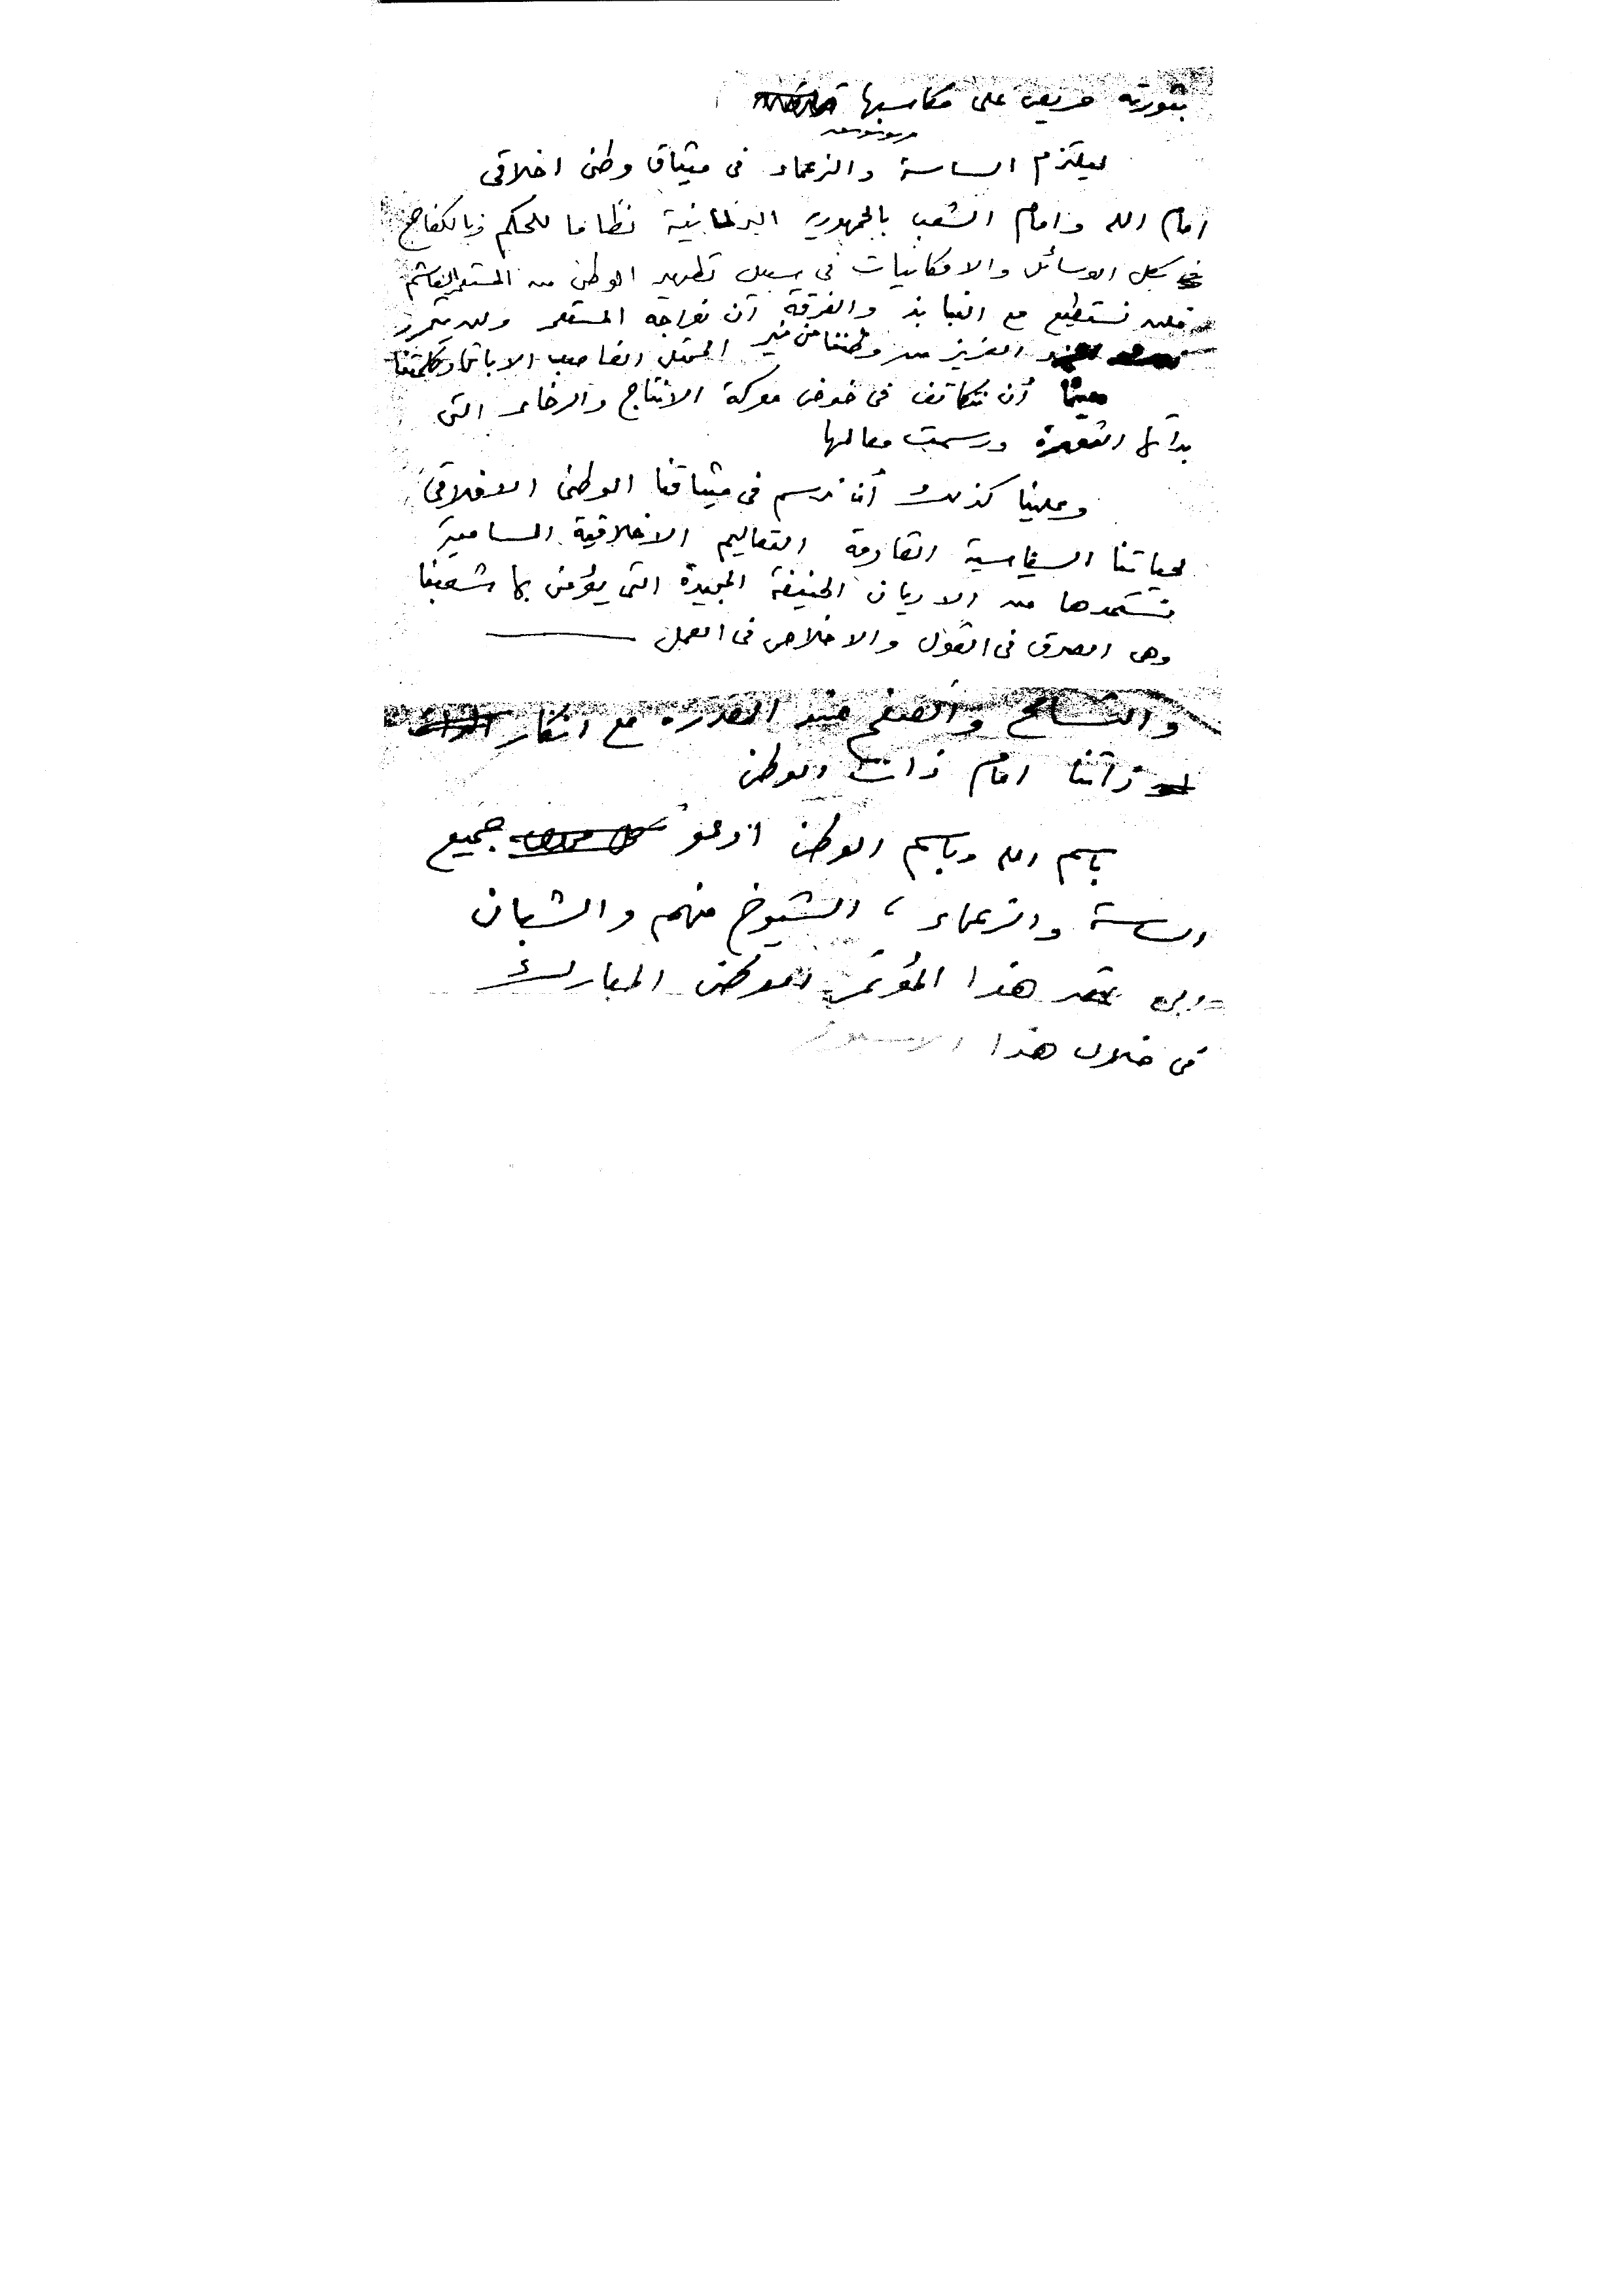 بثورته حريص على مكاسبها
ليلتزم الساسة والزعماء فى ميثاق وطنى اخلاقى
امام الله وامام الشعب بالجمهورية البرلمانية نظاما للحكم وبالكفاح
بكل الوسائل والامكانيات فى سبيل تطهير الوطن من المستعمر الغاشم
فلن نستطيع مع التنابذ والفرقة أن نواجه المستعمر ولن يتحرر
وطننا العزيز من نير المحتل الغاصب الا باتحاد كلمتنا
أن نتكاتف فى خوض معركة الانتاج والرخاء التى
بدأتها الثورة ورسمت معالمها
وعلينا كذلك أن نرسم فى ميثاقنا الوطنى الاخلاقى
لحياتنا السياسية القادمة التعاليم الاخلاقية السامية
نستمدها من الاديان الحنيفة المجيدة التى يؤمن بها شعبنا
وهى الصدق فى القول والاخلاص فى العمل
والتسامح والصفح عند المقدرة مع انكار
ذاتنا امام ذات الوطن
باسم الله وباسم الوطن ادعو جميع
الساسة والزعماء ، الشيوخ منهم والشبان
الى عقد هذا المؤتمر الوطنى المبارك
فى خلال هذا الاسبوع